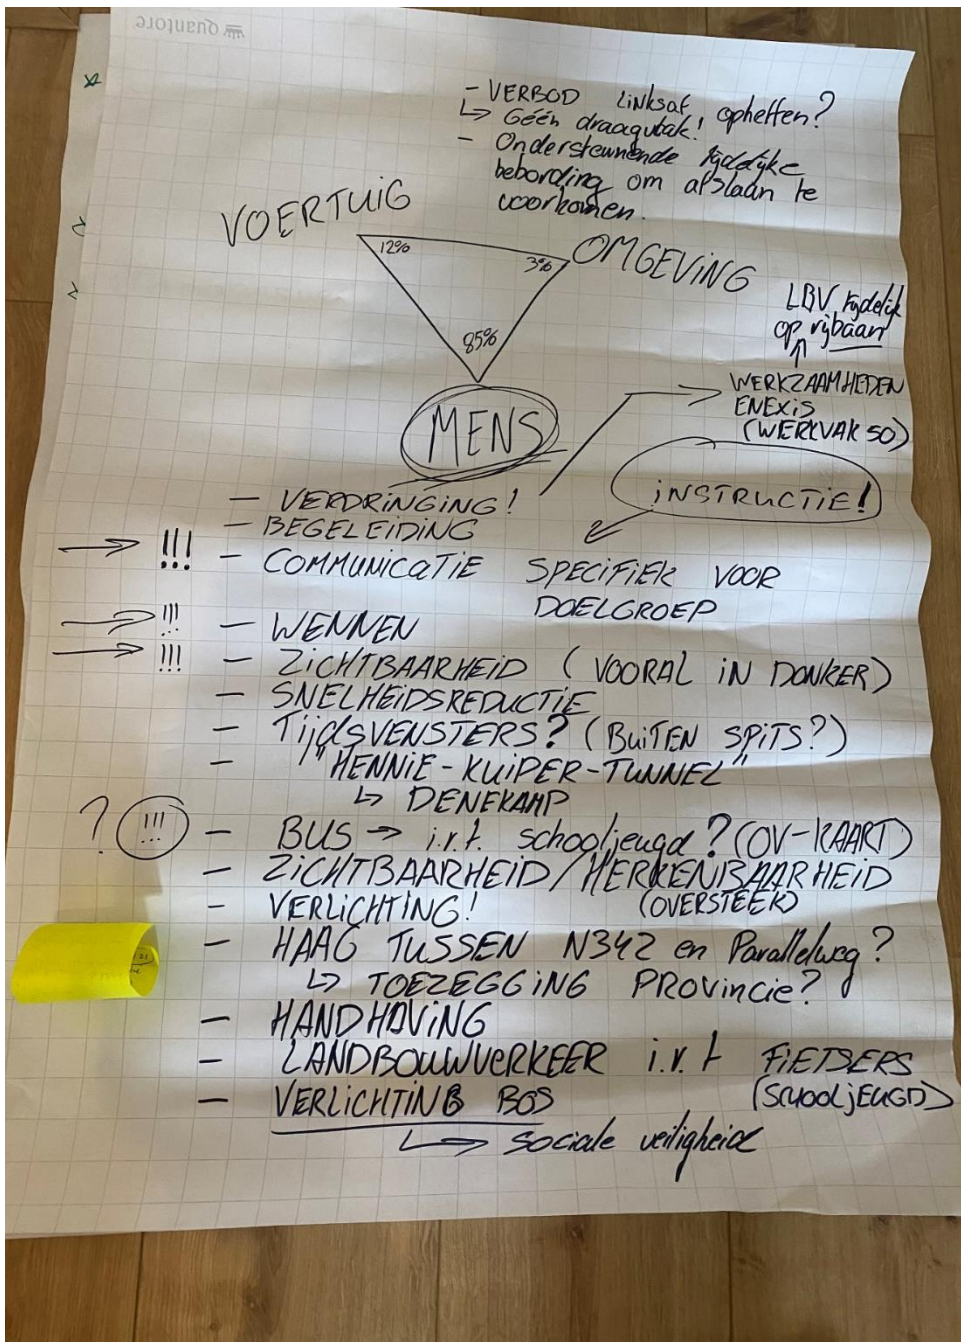 quantore
- VERBOD linksaf opheffen?
↳ Géén draagvlak!
- Ondersteunende tijdelijke
bebording om afslaan te
voorkomen.
VOERTUIG
12%
3%
OMGEVING
85%
MENS
LBV tijdelijk
op rijbaan
WERKZAAMHEDEN
ENEXIS
(WERKVAK 50)
INSTRUCTIE!
- VERDRINGING!
- BEGELEIDING
→ !!! - COMMUNICATIE SPECIFIEK VOOR
DOELGROEP
→ !!! - WENNEN
→ !!! - ZICHTBAARHEID (VOORAL IN DONKER)
- SNELHEIDSREDUCTIE
- TIJDSVENSTERS? (BUITEN SPITS?)
- "HENNIE-KUIPER-TUNNEL"
↳ DENEKAMP
? !!! - BUS → i.r.t. schooljeugd? (OV-KAART)
- ZICHTBAARHEID/HERKENBAARHEID
(OVERSTEEK)
- VERLICHTING!
- HAAG TUSSEN N342 en Parallelweg?
↳ TOEZEGGING PROVINCIE?
- HANDHAVING
- LANDBOUWVERKEER i.r.t FIETSERS
(SCHOOLJEUGD)
- VERLICHTING BOS
↳ Sociale veiligheid